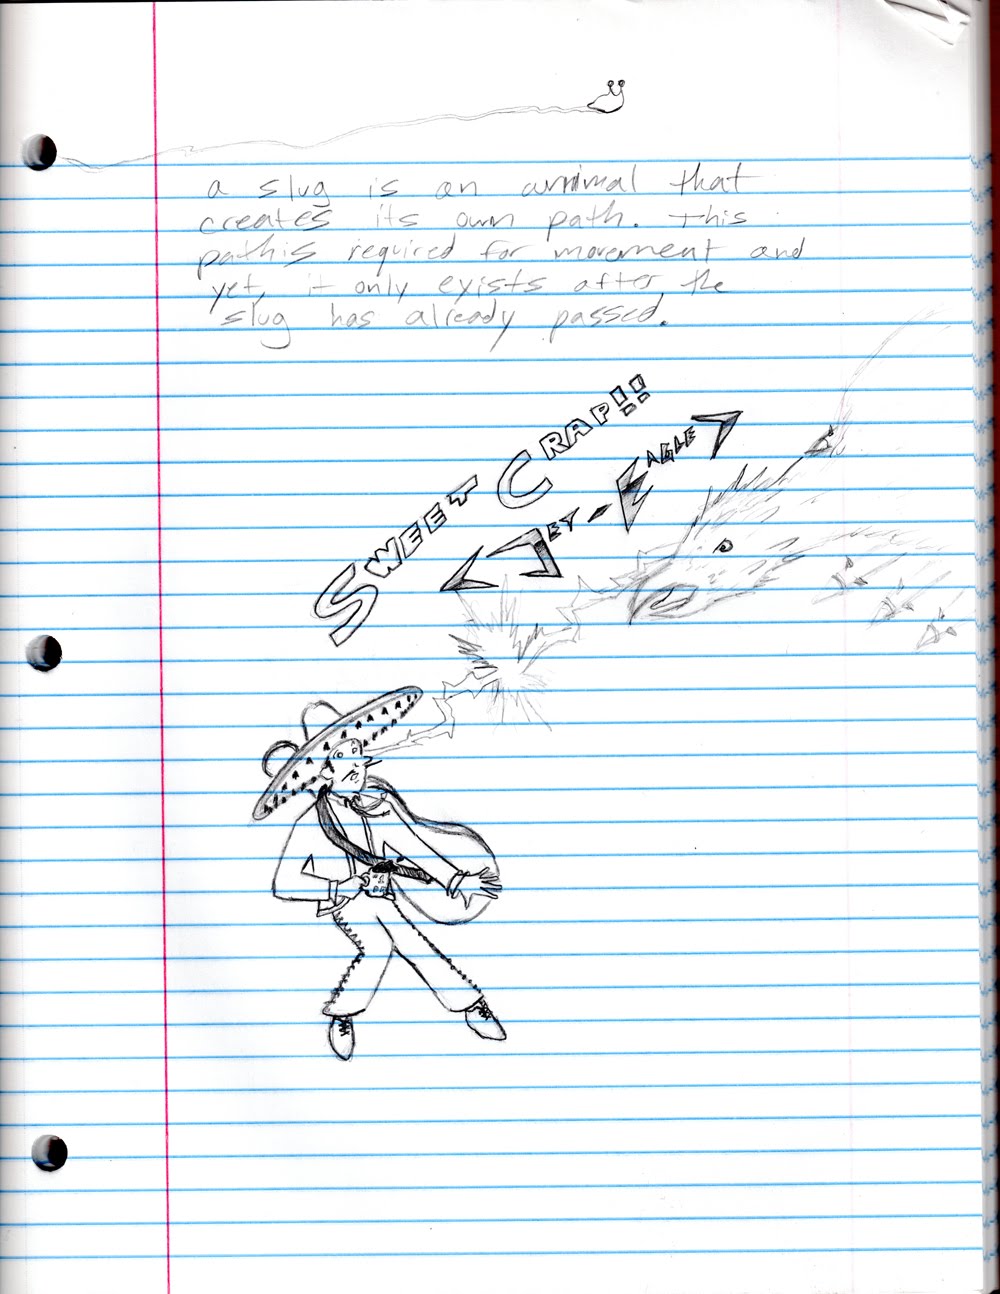 a slug is an animal that
creates its own path. This
pathis required for movement and
yet, it only exists after the
slug has already passed.
SWEET CRAP!!
<JET-EAGLE>